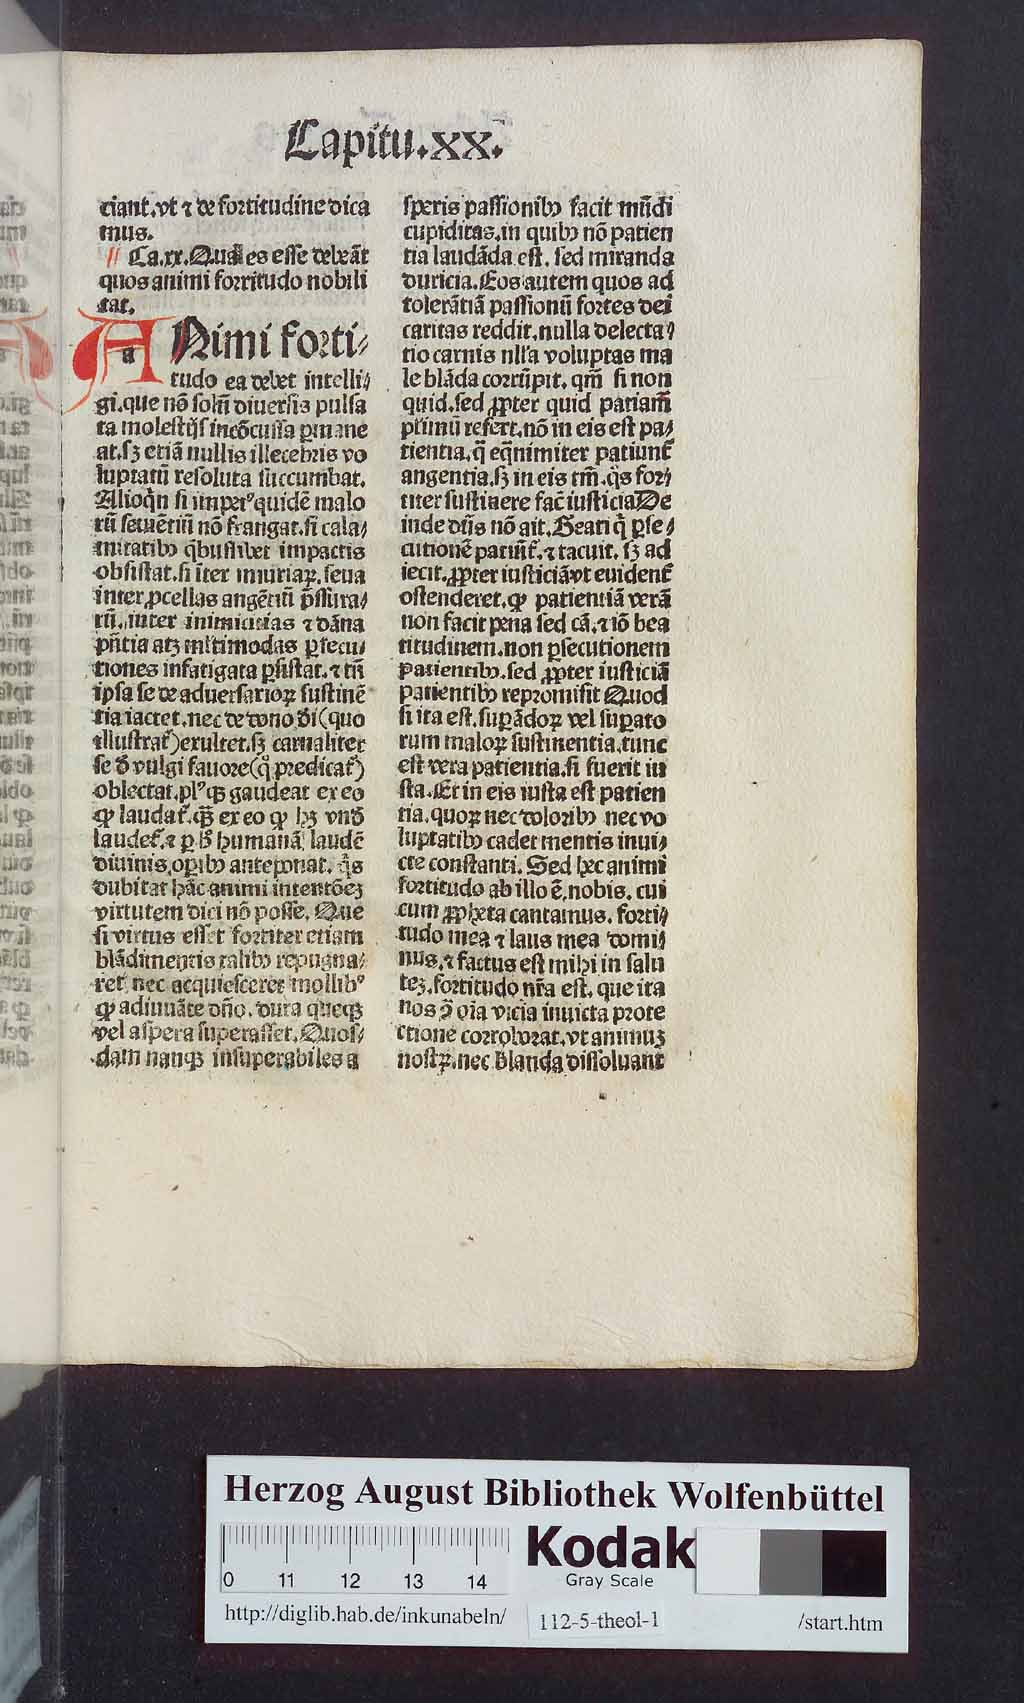 Capitu.xx.
ciant.vt ⁊ de fortitudine dica
mus.
Ca.xx. Quales esse debeāt
quos animi forritudo nobili
tat.
ANimi forti⸗
tudo ea debet intelli⸗
gi.que nō solū diuersis pulsa
ta molestijs incōcussa ꝑmane
at.sꝫ etiā nullis illecebris vo
luptatū resoluta succumbat.
Alioqͥn si impetꝰ quidē malo
rū seuētiū nō frangat.si cala⸗
mitatibꝰ qͥbuslibet impactis
obsistat.si iter iniuriaꝝ.seua
inter ꝓcellas angētiū p̄ssura⸗
rū.inter inimicicias ⁊ dāna
pn̄tia atqꝫ mltimodas ꝑsecu⸗
tiones infatigata ꝑsistat.⁊ tn̄
ipsa se de aduersarioꝝ sustinē
tia iactet.nec de dono dei(quo
illustrat᷑)exultet.sꝫ carnaliter
se d̄ vulgi fauore(q̊ predicat᷑)
oblectat.plꝰqꝫ gaudeat ex eo
ꝙ laudat᷑.qꝫ̄ ex eo ꝙ hꝫ vnd̄
laudet᷑.⁊ ꝑ hͦ humanā laudē
diuinis.oꝑibꝰ anteponat. qͥs
dubitat hāc animi intentōeꝫ
virtutem dici nō posse. Que
si virtus esset fortiter etiam
blādimentis talibꝰ repugna⸗
ret nec acquiesceret mollibꝰ
ꝙ adiuuāte dn̄o. dura queqꝫ
vel aspera superasset. Quos⸗
dam nanqꝫ insuperabiles a
speris passionibꝰ facit mūdi
cupiditas.in quibꝰ nō patien
tia laudāda est. sed miranda
duricia. Eos autem quos ad
tolerātiā passionū fortes dei
caritas reddit.nulla delecta⸗
tio carnis nlla voluptas ma
le blāda corrūpit. qm̄ si non
quid.sed ꝓpter quid patiam̄
plimū refert.nō in eis est pa⸗
tientia.q̄ eqͣnimiter patiunt᷑
angentia.sꝫ in eis tm̄.qͦs for⸗
titer sustinere fac̄ iusticia De
inde dn̄s nō ait. Beati q̇ ꝑse⸗
cutionē patiūt᷑.⁊ tacuit. sꝫ ad
iecit.ꝓpter iusticiā vt euident᷑
ostenderet. ꝙ patientiā verā
non facit pena sed cā.⁊ iō bea
titudinem.non ꝑsecutionem
patientibꝰ.sed ꝓpter iusticiā
patientibꝰ repromisit Quod
si ita est.suꝑādoꝝ vel suꝑato
rum maloꝝ sustinentia.tunc
est vera patientia.si fuerit iu
sta. Et in eis iusta est patien
tia.quoꝝ nec doloribꝰ nec vo
luptatibꝰ cadet mentis inui⸗
cte constanti. Sed hec animi
fortitudo ab illo ē.nobis. cui
cum ꝓpheta cantamus. forti⸗
tudo mea ⁊ laus mea domi⸗
nus.⁊ factus est mihi in salu
teꝫ.fortitudo nr̄a est. que ita
nos ꝯ oīa vicia inuicta prote
ctione corroborat.vt animuꝫ
nostꝝ.nec blanda dissoluant
Herzog August Bibliothek Wolfenbüttel
0 11 12 13 14
Kodak
Gray Scale
http://diglib.hab.de/inkunabeln/ 112-5-theol-1 /start.htm